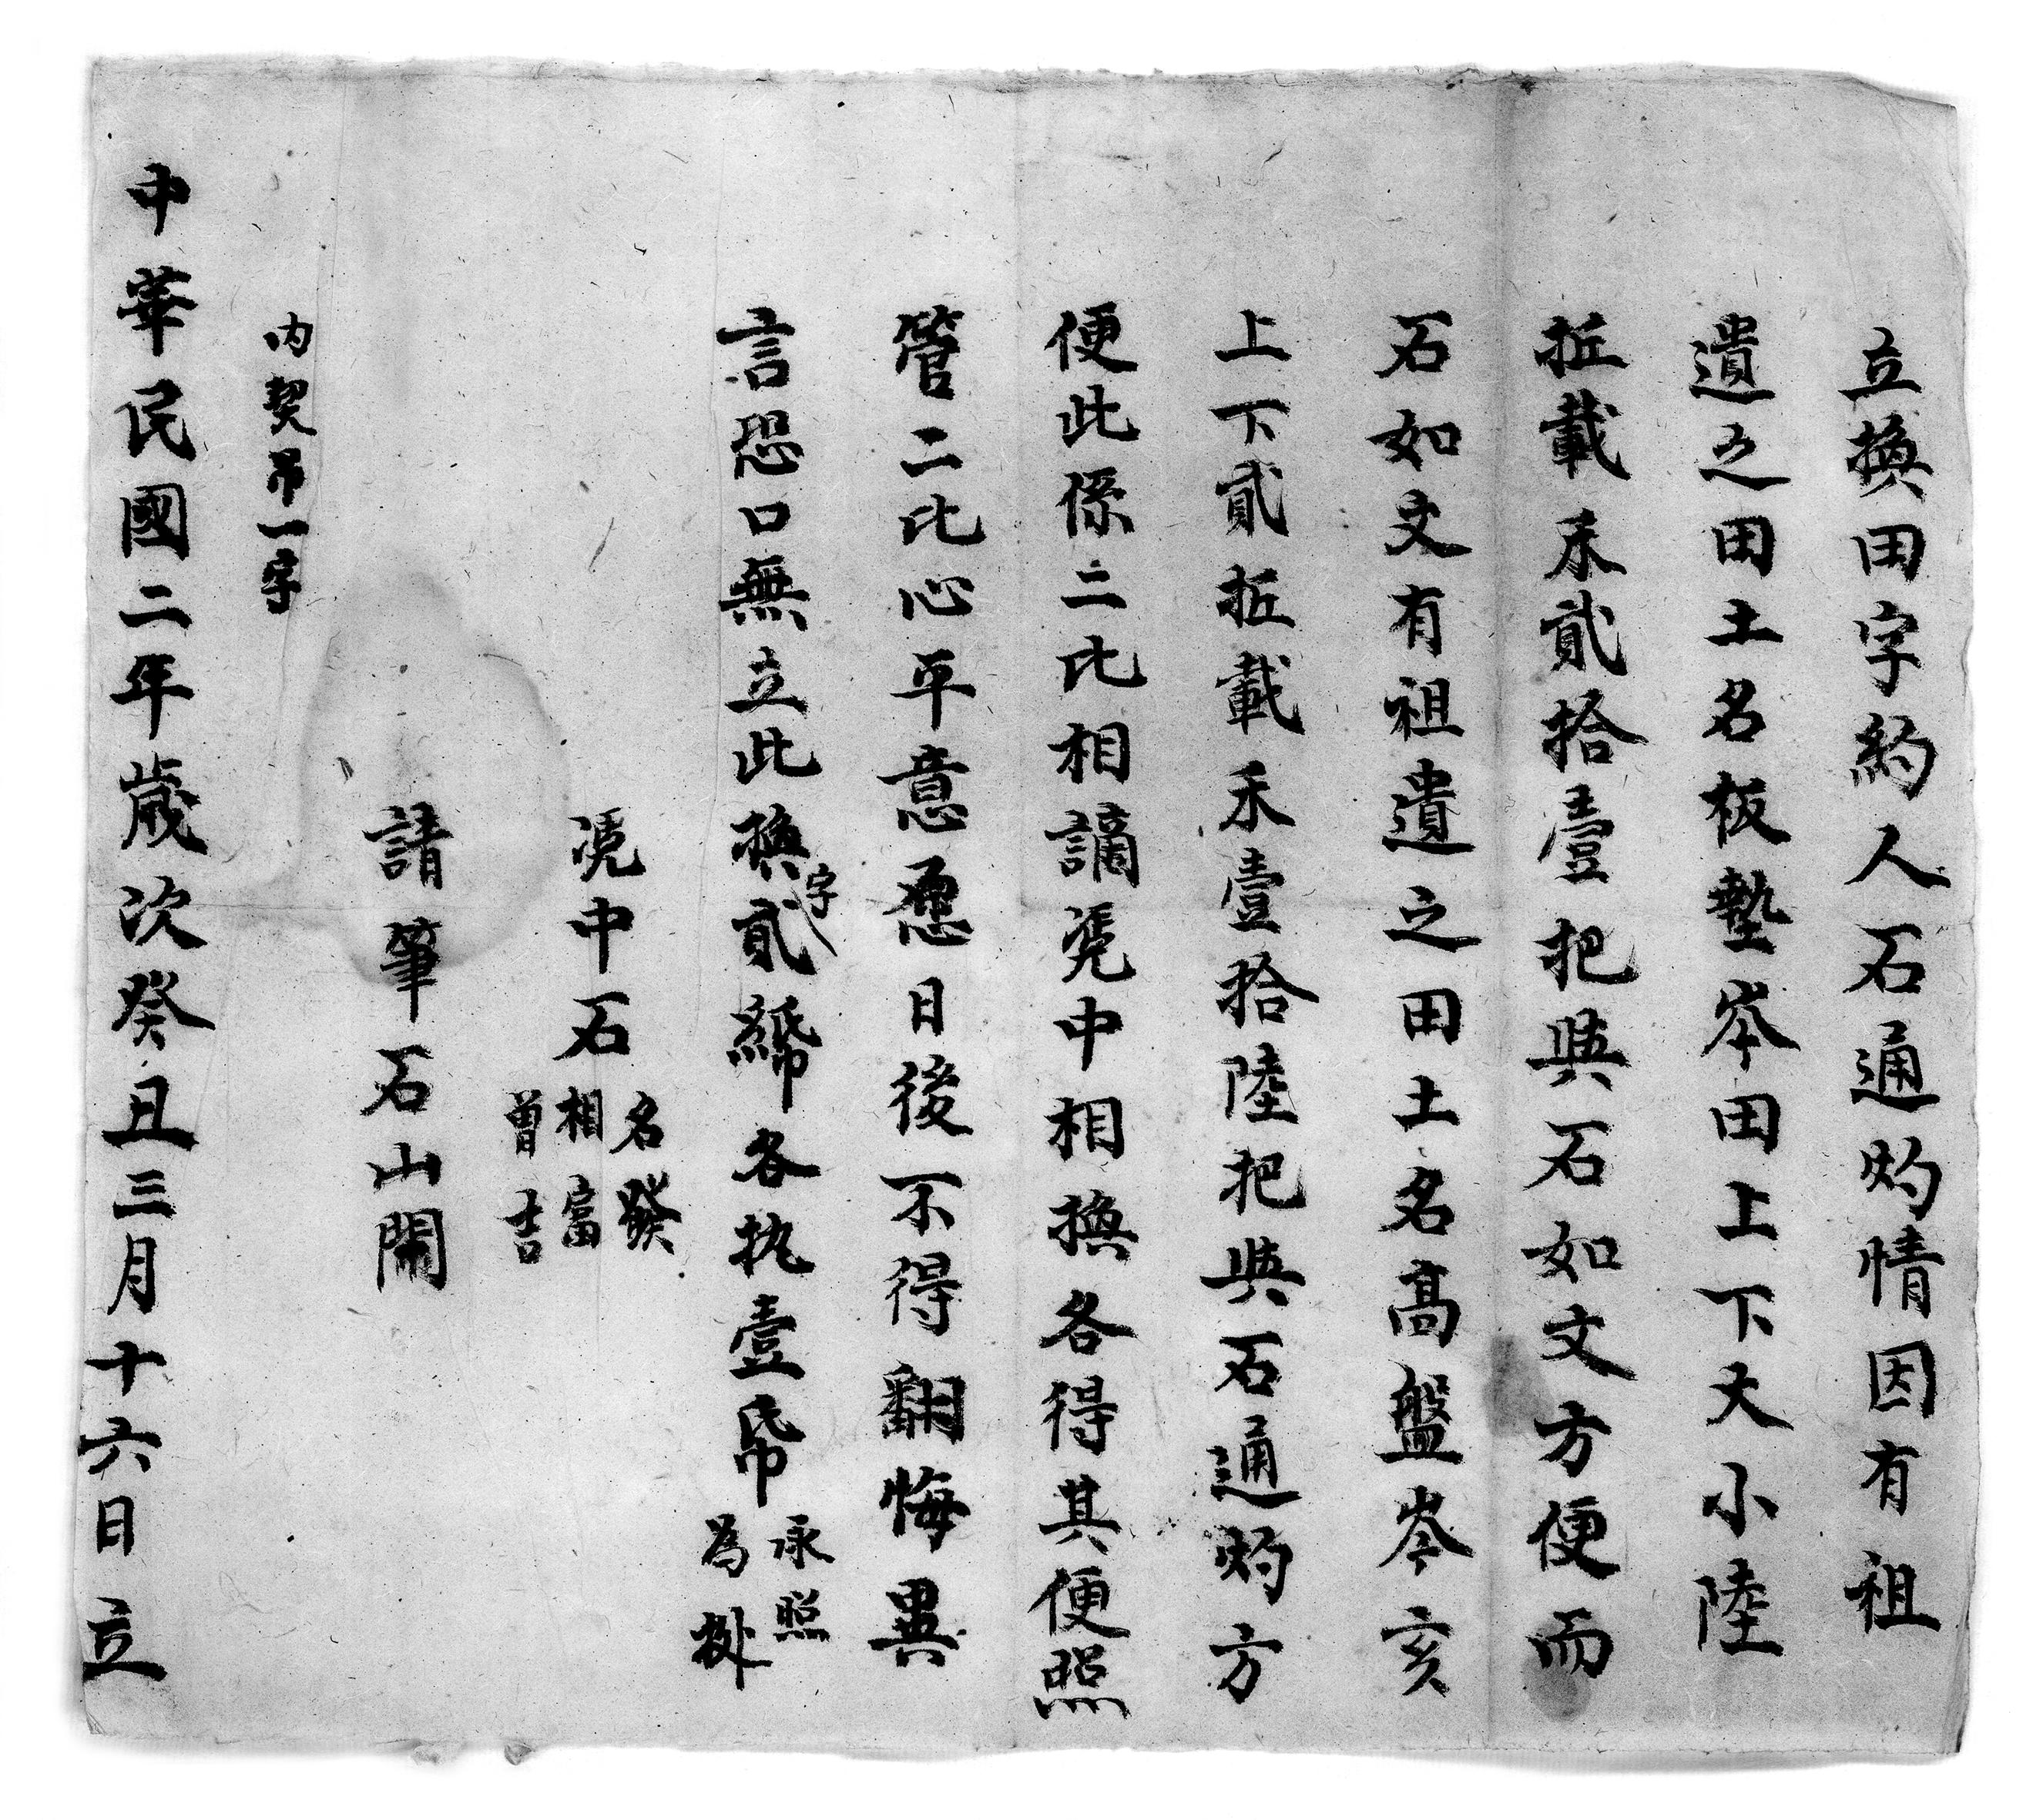 立換田字約人石通灼情因有祖
遺之田土名板墊岺田上下大小陸
坵載禾貳拾壹把與石如文方便而
石如文有祖遺之田土名高盤岺亥
上下貳坵載禾壹拾陸把與石通灼方
便此係二比相謫凴中相換各得其便照
管二比心平意愿日後不得翻悔異
言恐口無立此換字貳綿各执壹帋永照為挀
凴中石名發相富曾吉
請筆石山開
内契吊一字
中華民國二年歲次癸丑三月十六日立